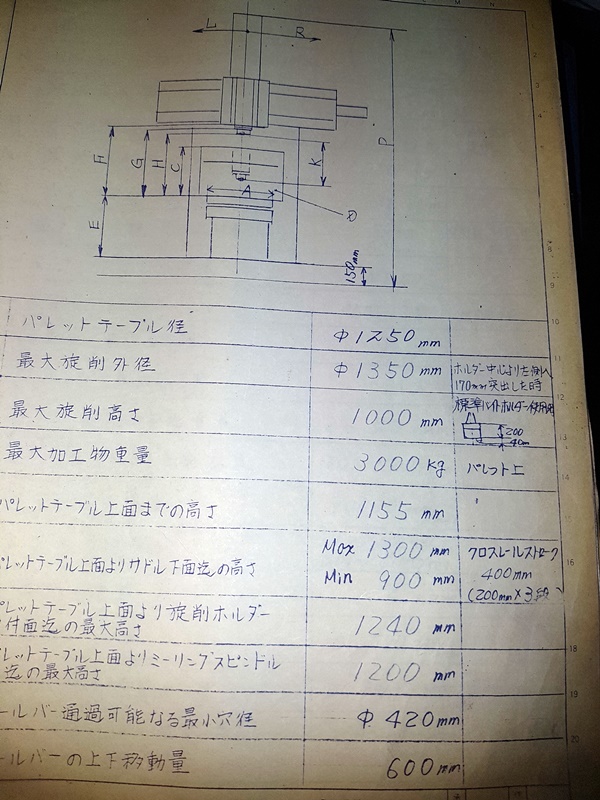 L
R
P
F
G
H
C
K
A
E
150mm
パレットテーブル径 φ1250mm
最大旋削外径 φ1350mm ホルダー中心より左側へ
170mm突出した時
最大旋削高さ 1000mm 標準バイトホルダー使用時
200
40mm
最大加工物重量 3000kg パレット上
パレットテーブル上面までの高さ 1155mm
パレットテーブル上面よりサドル下面迄の高さ Max 1300mm クロスレールストローク
Min 900mm 400mm
(200mm×3段
レットテーブル上面より旋削ホルダー
付面迄の最大高さ 1240mm
レットテーブル上面よりミーリングスピンドル
迄の最大高さ 1200mm
ールバー通過可能なる最小穴径 φ420mm
ールバーの上下移動量 600mm
10
11
12
13
14
16
18
19
20